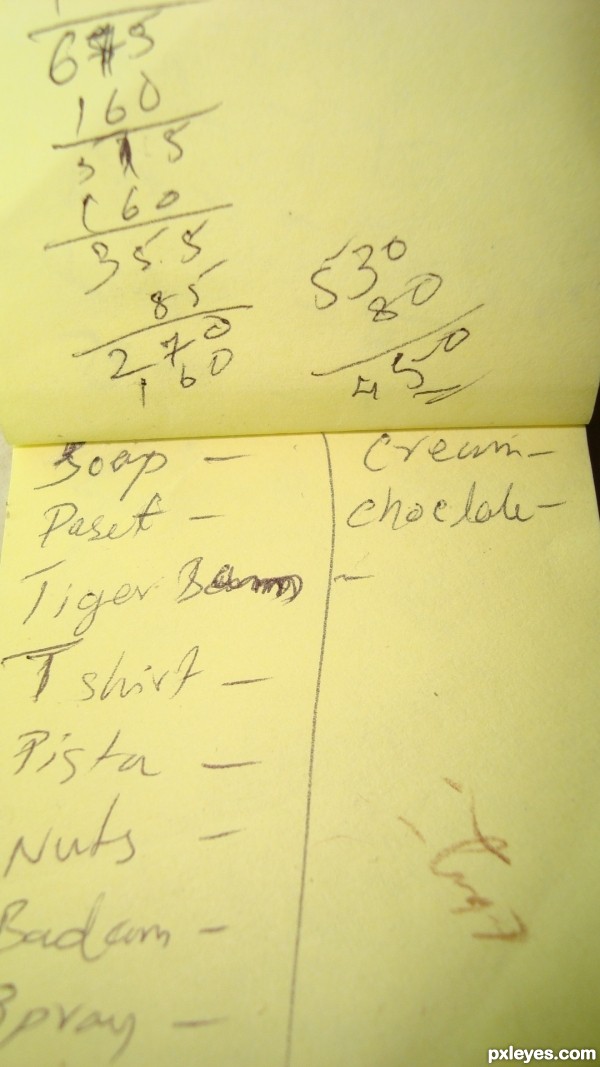 160
160
355
85
270
160
530
80
450
Soap -
Paset -
Tiger
T shirt -
Pista -
Nuts -
Badam -
Spray -
Cream -
Choclate -
pxleyes.com